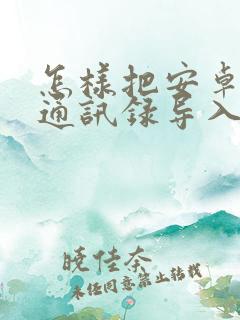 怎樣把安卓
通訊錄导入
曉佳奈
未经同意禁止转载